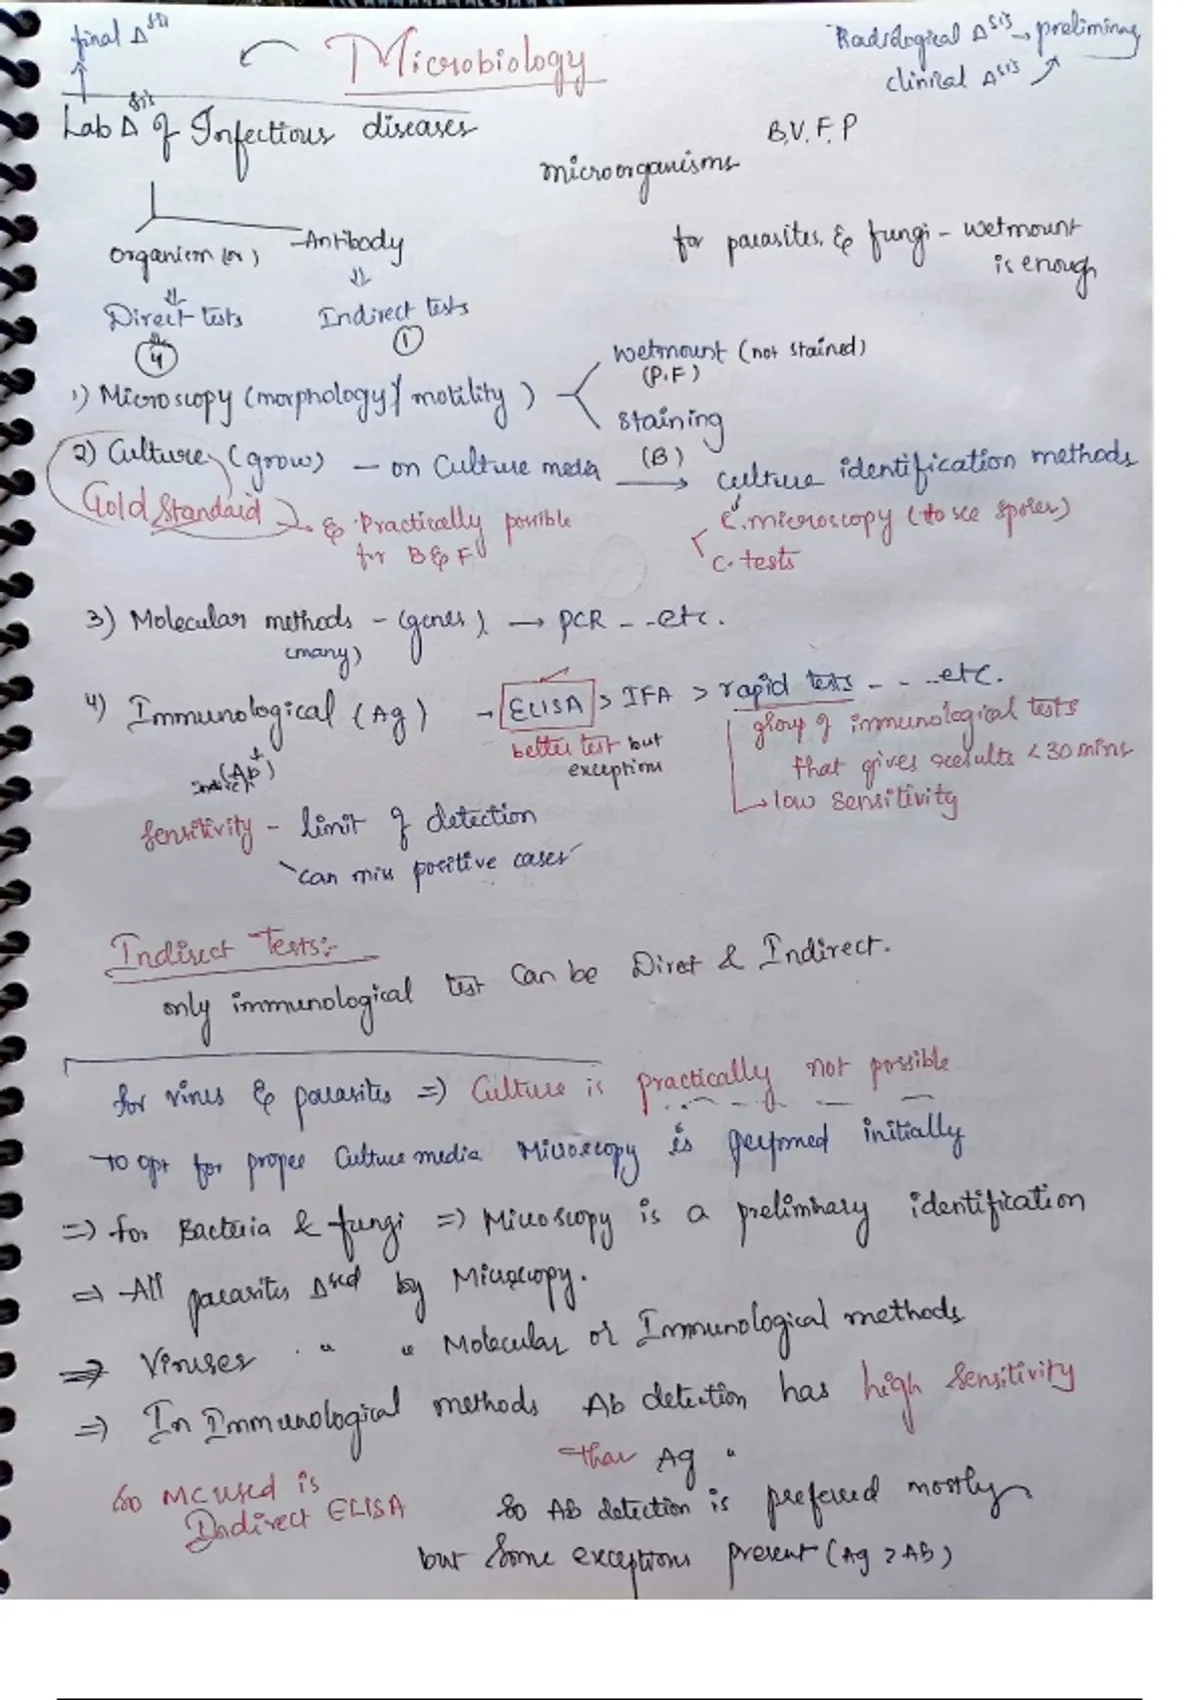 final Δsis
Microbiology
Radiological Δsis → preliminary
clinical Δsis
Lab Δsis of Infectious diseases
B,V,F,P
microorganisms
organism (or) Antibody
for parasites & fungi - wetmount
is enough
Direct tests Indirect tests
4 1
wetmount (not stained)
(P,F)
1) Microscopy (morphology/motility)
staining
(B)
2) Culture (grow) — on Culture media → culture identification methods
Gold Standard → & Practically possible
for B & F
C. microscopy (to see spores)
C. tests
3) Molecular methods - (genes) → PCR - -etc.
(many)
4) Immunological (Ag) → ELISA > IFA > rapid tests - - ..etc.
(Ab)
Indirect
better test but
exceptions
group of immunological tests
that gives results < 30 mins
→ low sensitivity
Sensitivity - limit of detection
can miss positive cases
Indirect Tests:-
only immunological test can be Diret & Indirect.
for virus & parasites => Culture is practically not possible
To opt for proper Culture media Microscopy is performed initially
=> for Bacteria & fungi => Microscopy is a preliminary identification
=> All parasites Δsed by Microscopy.
=> Viruses " " Molecular or Immunological methods
=> In Immunological methods Ab detection has high Sensitivity
than Ag "
So MC used is
Indirect ELISA
So Ab detection is prefered mostly
but Some exceptions present (Ag > Ab)